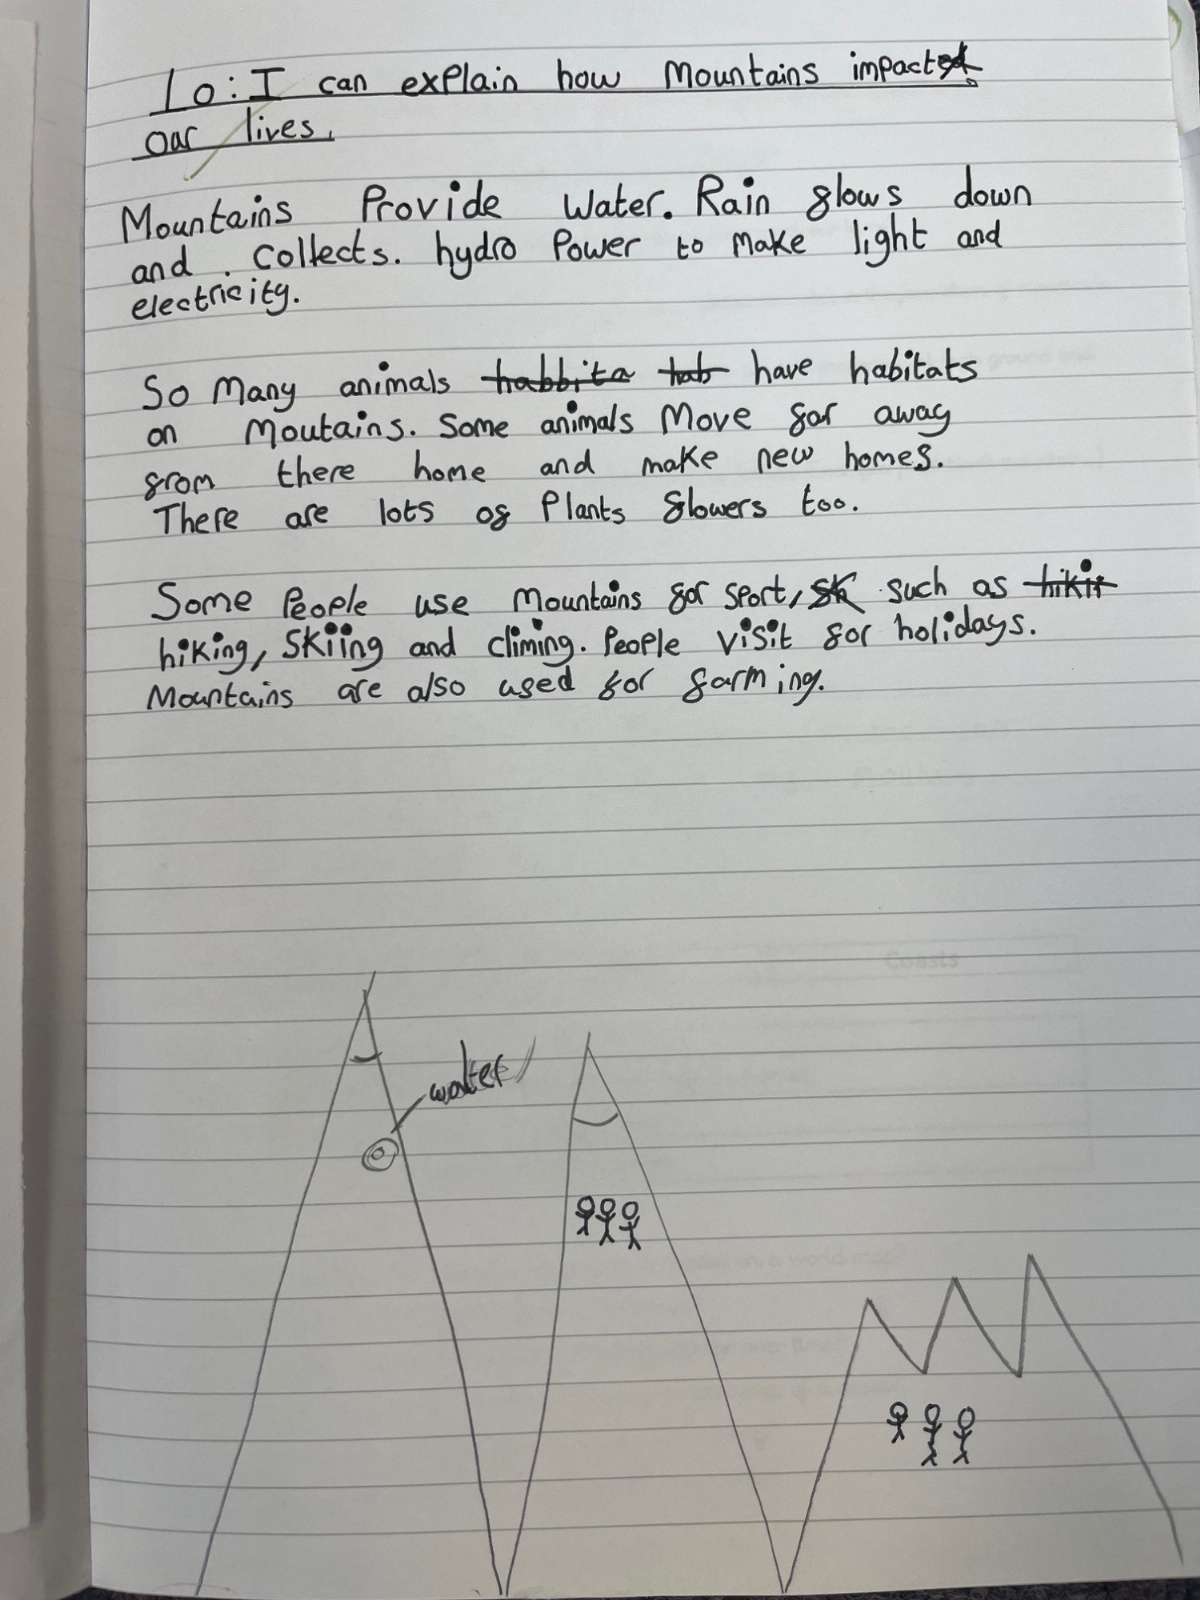 Lo: I can explain how Mountains impact
our lives.
Mountains Provide Water. Rain flows down
and . Collects. hydro Power to Make light and
electricity.
So Many animals habbita hab have habitats
on Moutains. Some animals Move far away
from there home and make new homes.
There are lots of Plants flowers too.
Some People use Mountains for sport, sk such as hikin
hiking, Skiing and climing. People visit for holidays.
Mountains are also used for farming.
water
Coasts